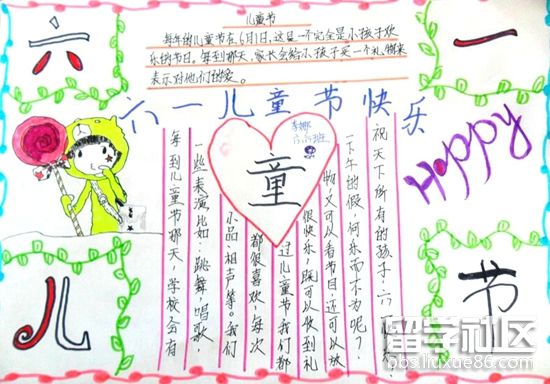 六
一
儿童节
每年的儿童节在6月1日,这是一个完全是小孩子欢
乐的节日。每到那天,家长会给小孩子买一个礼物来
表示对他们的爱。
六一儿童节快乐
李娜
童
Happy
每到儿童节那天,学校会有
一些表演比如:跳舞,唱歌,
小品,相声等。我们
都很喜欢,每次
过儿童节我们都
很快乐,既可以收到礼
物,又可以看节目,还可以放
一下午的假,何乐而不为呢?
祝天下所有的孩子:六
儿
节
留学社区
bbs.liuxue86.com